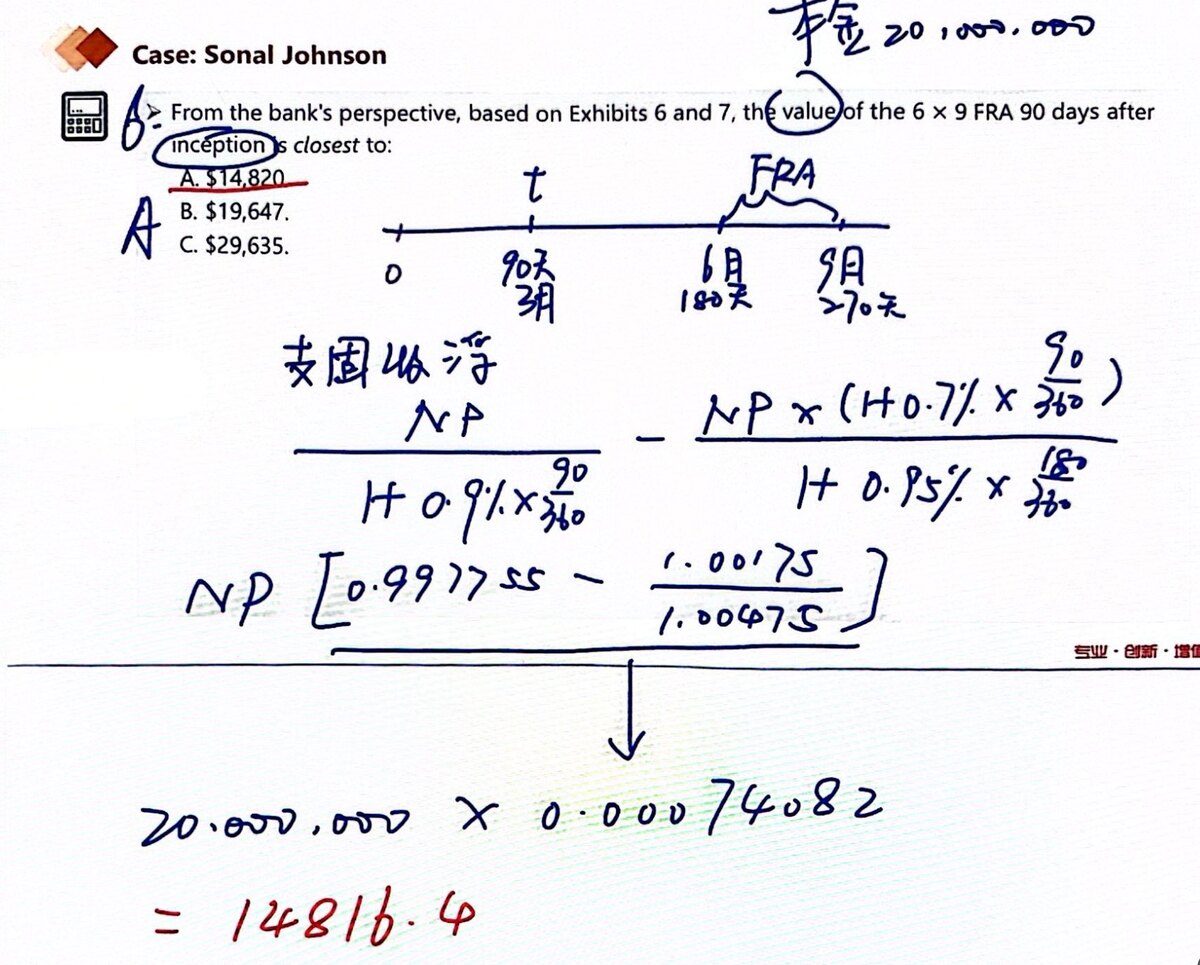 本金 20,000.000
Case: Sonal Johnson
6. From the bank's perspective, based on Exhibits 6 and 7, the value of the 6 × 9 FRA 90 days after
inception is closest to:
A. $14,820
B. $19,647.
C. $29,635.
A
t
FRA
0
90天
3月
6月
180天
9月
270天
支固收浮
NP / 1+0.9%×90/360 - NP×(1+0.7%×90/360) / 1+0.95%×180/360
NP [0.997755 - 1.00175/1.00475]
专业·创新·增值
20.000,000 × 0.00074082
= 14816.4